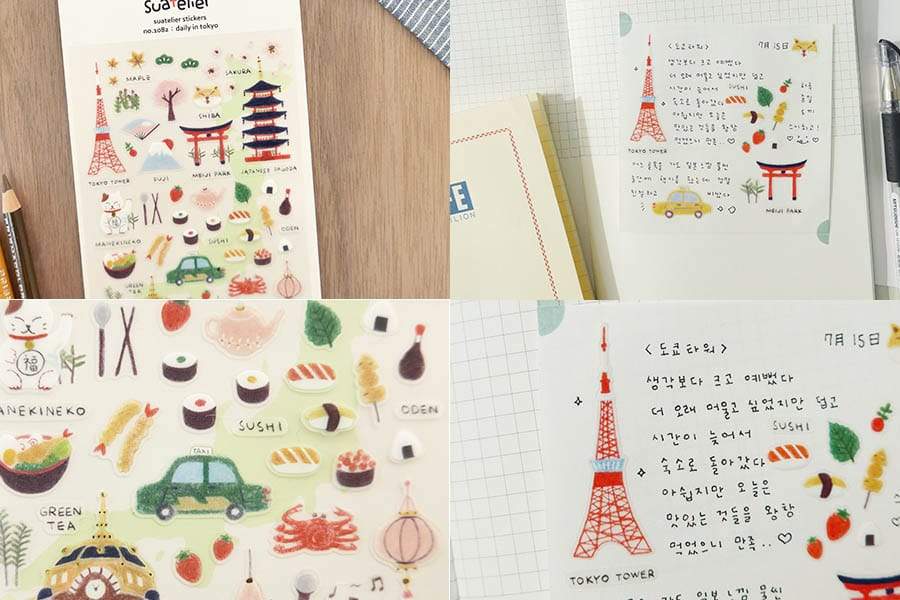 suatelier
suatelier stickers
no.1082 : daily in tokyo
MAPLE
SAKURA
SHIBA
TOKYO TOWER
FUJI
MEIJI PARK
JAPANESE PAGODA
MANEKINEKO
SUSHI
ODEN
GREEN
TEA
<도쿄타워>
7月 15日
생각보다 크고 예뻤다
더 오래 머물고 싶었지만 덥고
시간이 늦어서
SUSHI
숙소로 돌아갔다
아쉽지만 오늘은
맛있는 것들을 왕창
먹었으니 만족..♡
TOKYO TOWER
MEIJI PARK
福
ANEKINEKO
SUSHI
ODEN
TAXI
GREEN
TEA
<도쿄타워>
7月 15日
생각보다 크고 예뻤다
더 오래 머물고 싶었지만 덥고
시간이 늦어서
SUSHI
숙소로 돌아갔다
아쉽지만 오늘은
맛있는 것들을 왕창
먹었으니 만족..♡
TOKYO TOWER